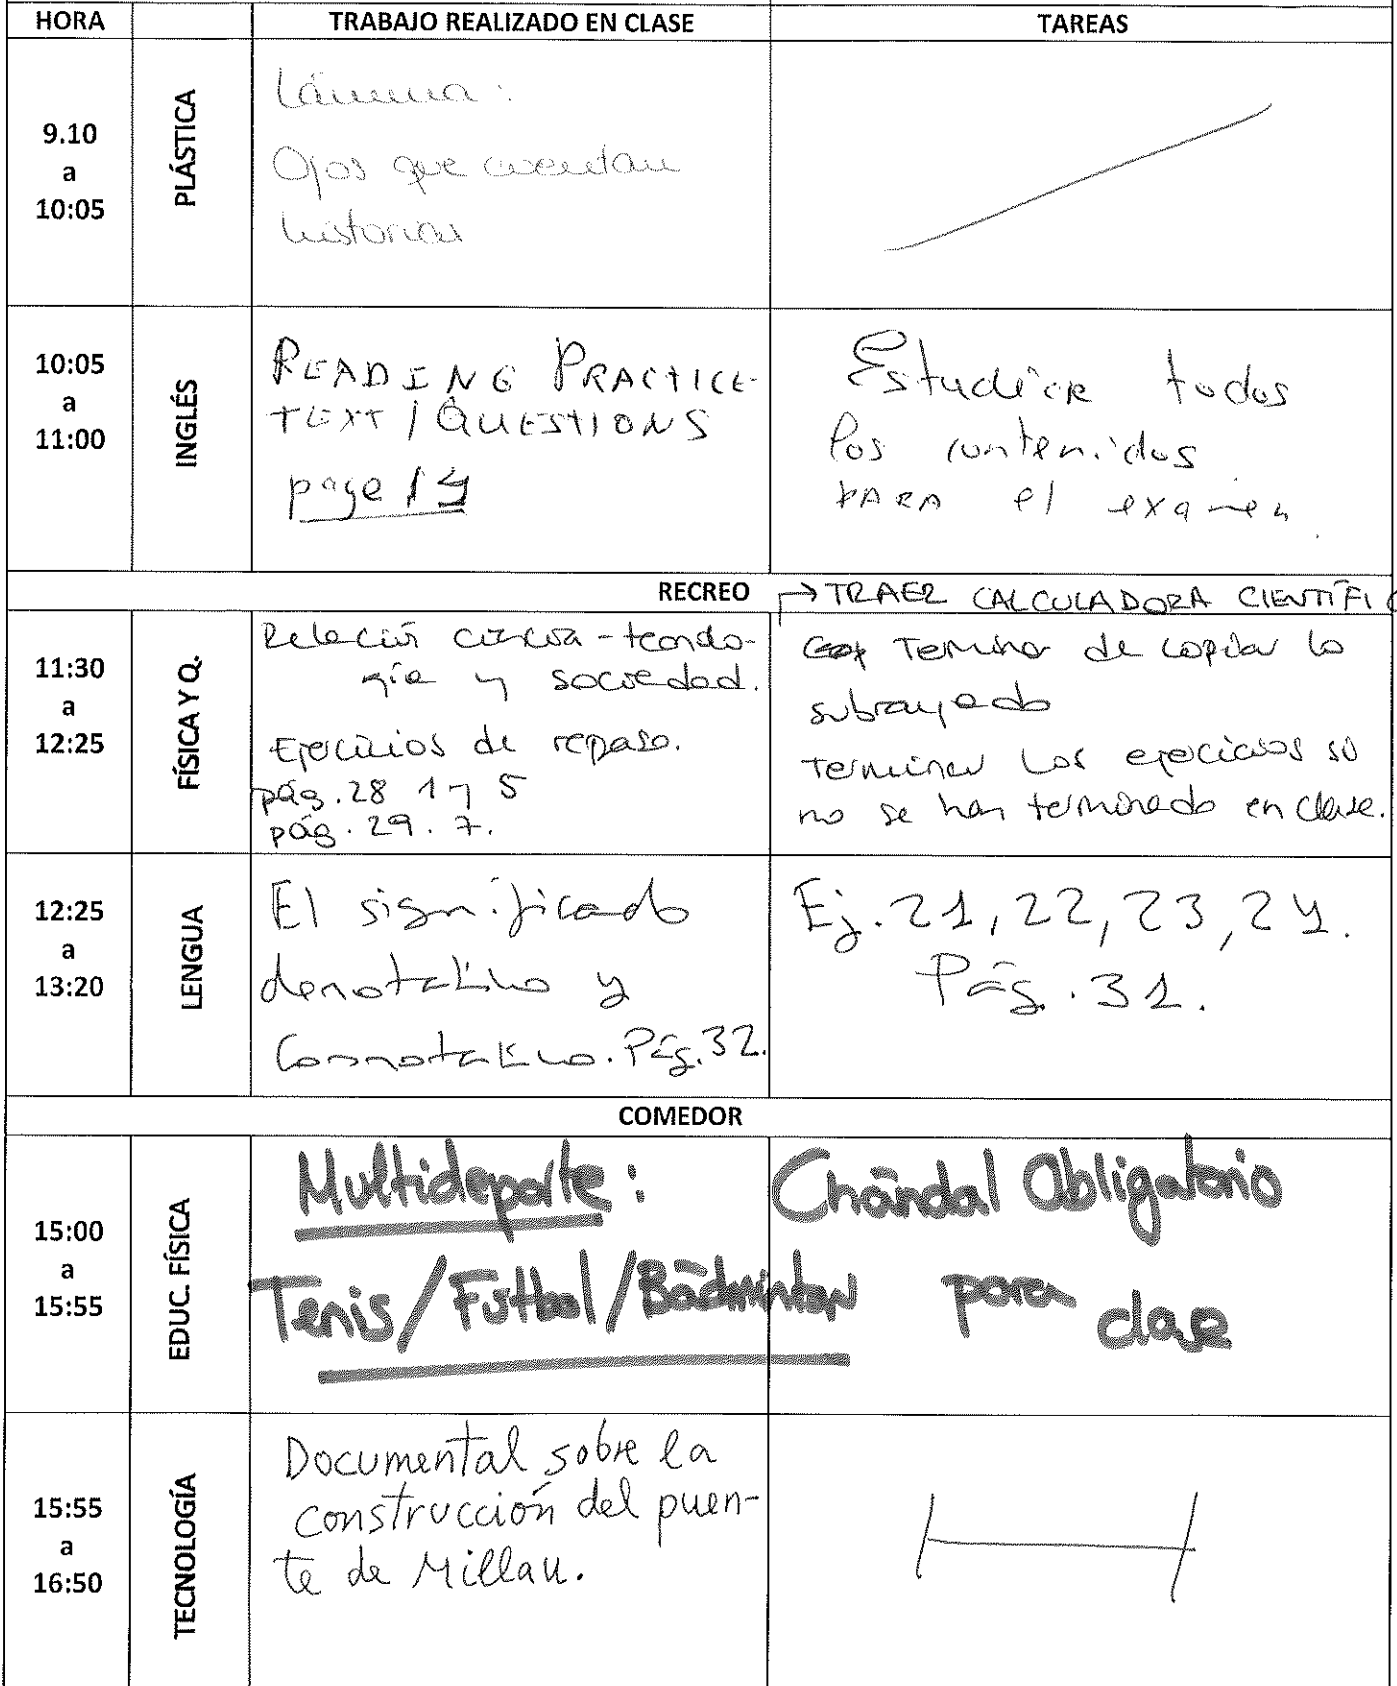 HORA TRABAJO REALIZADO EN CLASE TAREAS
9.10
a
10:05
PLÁSTICA
Lámina:
Ojos que cuentan
historias
10:05
a
11:00
INGLÉS
READING PRACTICE
TEXT / QUESTIONS
page
Estudiar todos
los contenidos
PARA el examen.
RECREO
→ TRAER CALCULADORA CIENTÍFIC
11:30
a
12:25
FÍSICA Y Q.
Relación ciencia-tecnolo-
gía y sociedad.
Ejercicios de repaso.
pág. 28 1 y 5
pág. 29. 7.
Terminar de copiar lo
subrayado
Terminar los ejercicios si
no se han terminado en clase.
12:25
a
13:20
LENGUA
El significado
denotativo y
Connotativo. Pág. 32.
Ej. 21, 22, 23, 24.
Pág. 31.
COMEDOR
15:00
a
15:55
EDUC. FÍSICA
Multideporte:
Tenis/Fútbol/Bádminton
Chándal Obligatorio
para clase
15:55
a
16:50
TECNOLOGÍA
Documental sobre la
construcción del puen-
te de Millau.